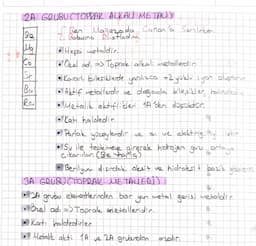 2A GRUBU (TOPRAK ALKALİ METALİ)
Be
Mg
Ca
Sr
Ba
Ra
Ben Mağazada Canan'a
•Hepsi metaldir.
•Özel adı => Toprak alkali metalleridir.
•Kararlı bileşiklerde yalnızca +2 yüklü iyon
•Aktif metallerdir ve doğada bileşikler
•Metalik aktiflikleri 1A'dan düşüktür.
•Katı haldedir.
•Parlak yüzeylerdir ve ısı ve elektriği
•Su ile tepkimeye girerek hidrojen gazı
çıkarırlar (Be hariç)
•Berilyum dışındaki oksit ve hidroksit bazik
3A GRUBU (TOPRAK METALLERİ)
•3A grubu elementlerinden bor yarı metal gerisi metaldir.
•Özel adı => Toprak metalleridir.
•Katı haldedirler.
•Metalik aktifliği 1A ve 2A grubundan azdır.